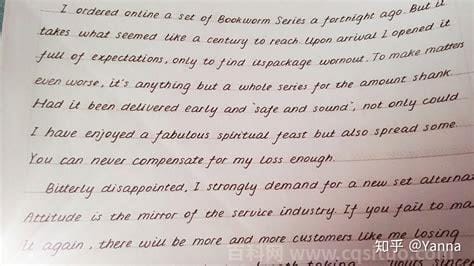 I ordered online a set of Bookworm Series a fortnight ago. But it
takes what seemed like a century to reach. Upon arrival I opened it
full of expectations, only to find itspackage wornout. To make matters
even worse, it's anything but a whole series for the amount shank.
Had it been delivered early and "safe and sound", not only could
I have enjoyed a fabulous spiritual feast but also spread some.
You can never compensate for my loss enough.
Bitterly disappointed, I strongly demand for a new set
Attitude is the mirror of the service industry. If you fail to ma
it again, there will be more and more customers like me losing
worth taking. Yours
百科网 www.cqsituo.com
知乎 @Yanna